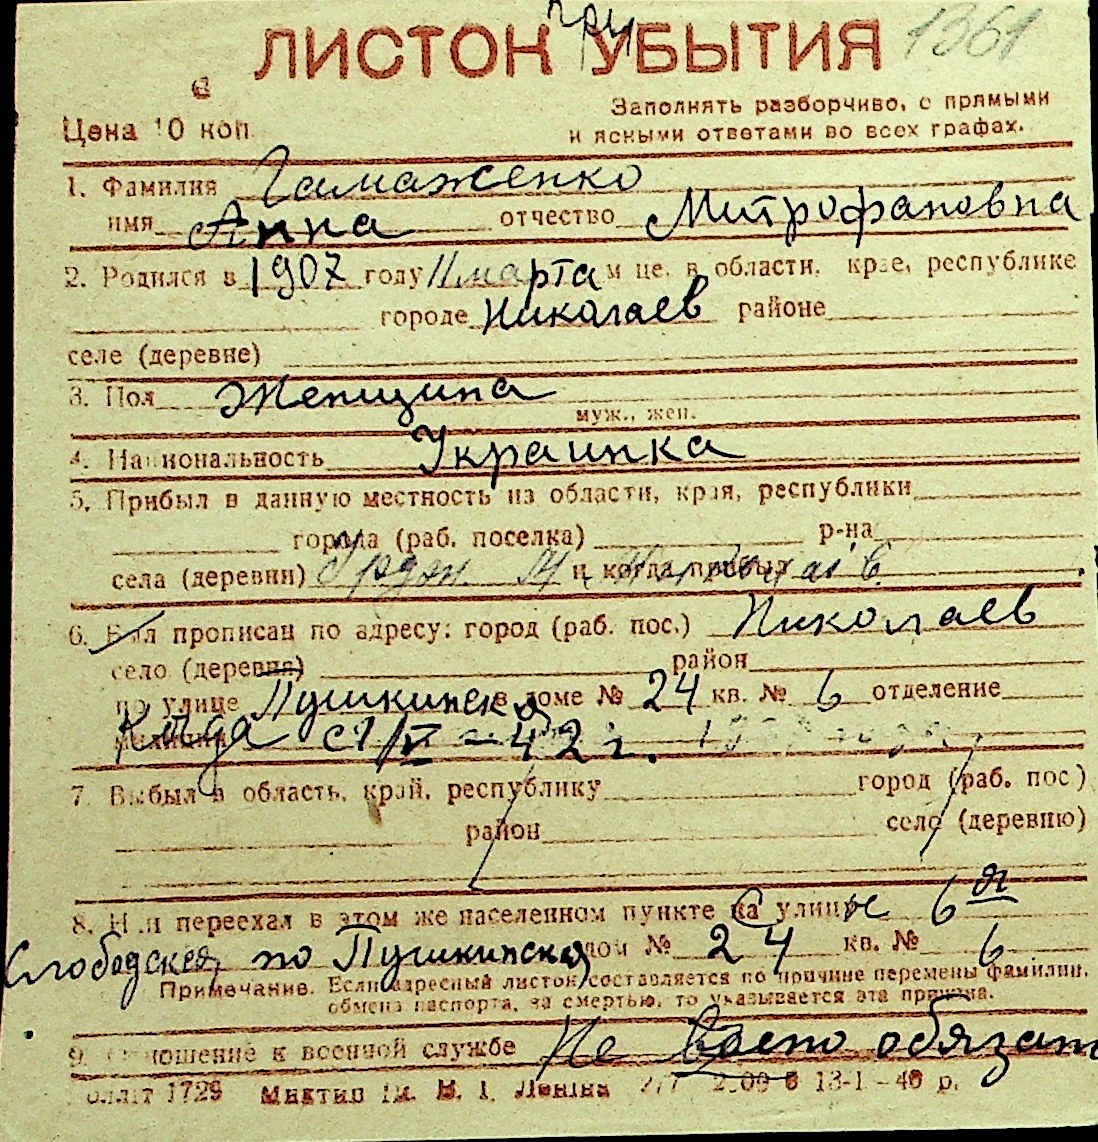 при 1361
ЛИСТОК УБЫТИЯ
Цена 10 коп.
Заполнять разборчиво, с прямыми
и ясными ответами во всех графах.
1. Фамилия Гамаженко
имя Анна отчество Митрофановна
2. Родился в 1907 году 11 марта м це. в области, крае, республике
городе Николаев районе
селе (деревне)
3. Пол Женщина
муж., жен.
4. Национальность Украинка
5. Прибыл в данную местность из области, края, республики
города (раб. поселка) р-на
села (деревни) и когда прибыл
6. Был прописан по адресу: город (раб. пос.) Николаев
село (деревня) район
по улице Пушкинская в доме № 24 кв. № 6 отделение
милиции Когда с 1/VI – 42 г.
7. Выбыл в область, край, республику город (раб. пос)
район село (деревню)
8. Или переехал в этом же населенном пункте на улицу с 6 я
Слободской по Пушкинская дом № 24 кв. № 6
Примечание. Если адресный листок составляется по причине перемены фамилии,
обмена паспорта, за смертью, то указывается эта причина.
9. Отношение к военной службе Не воено обязан
1729 им. В. І. Леніна 13-1-40 р.